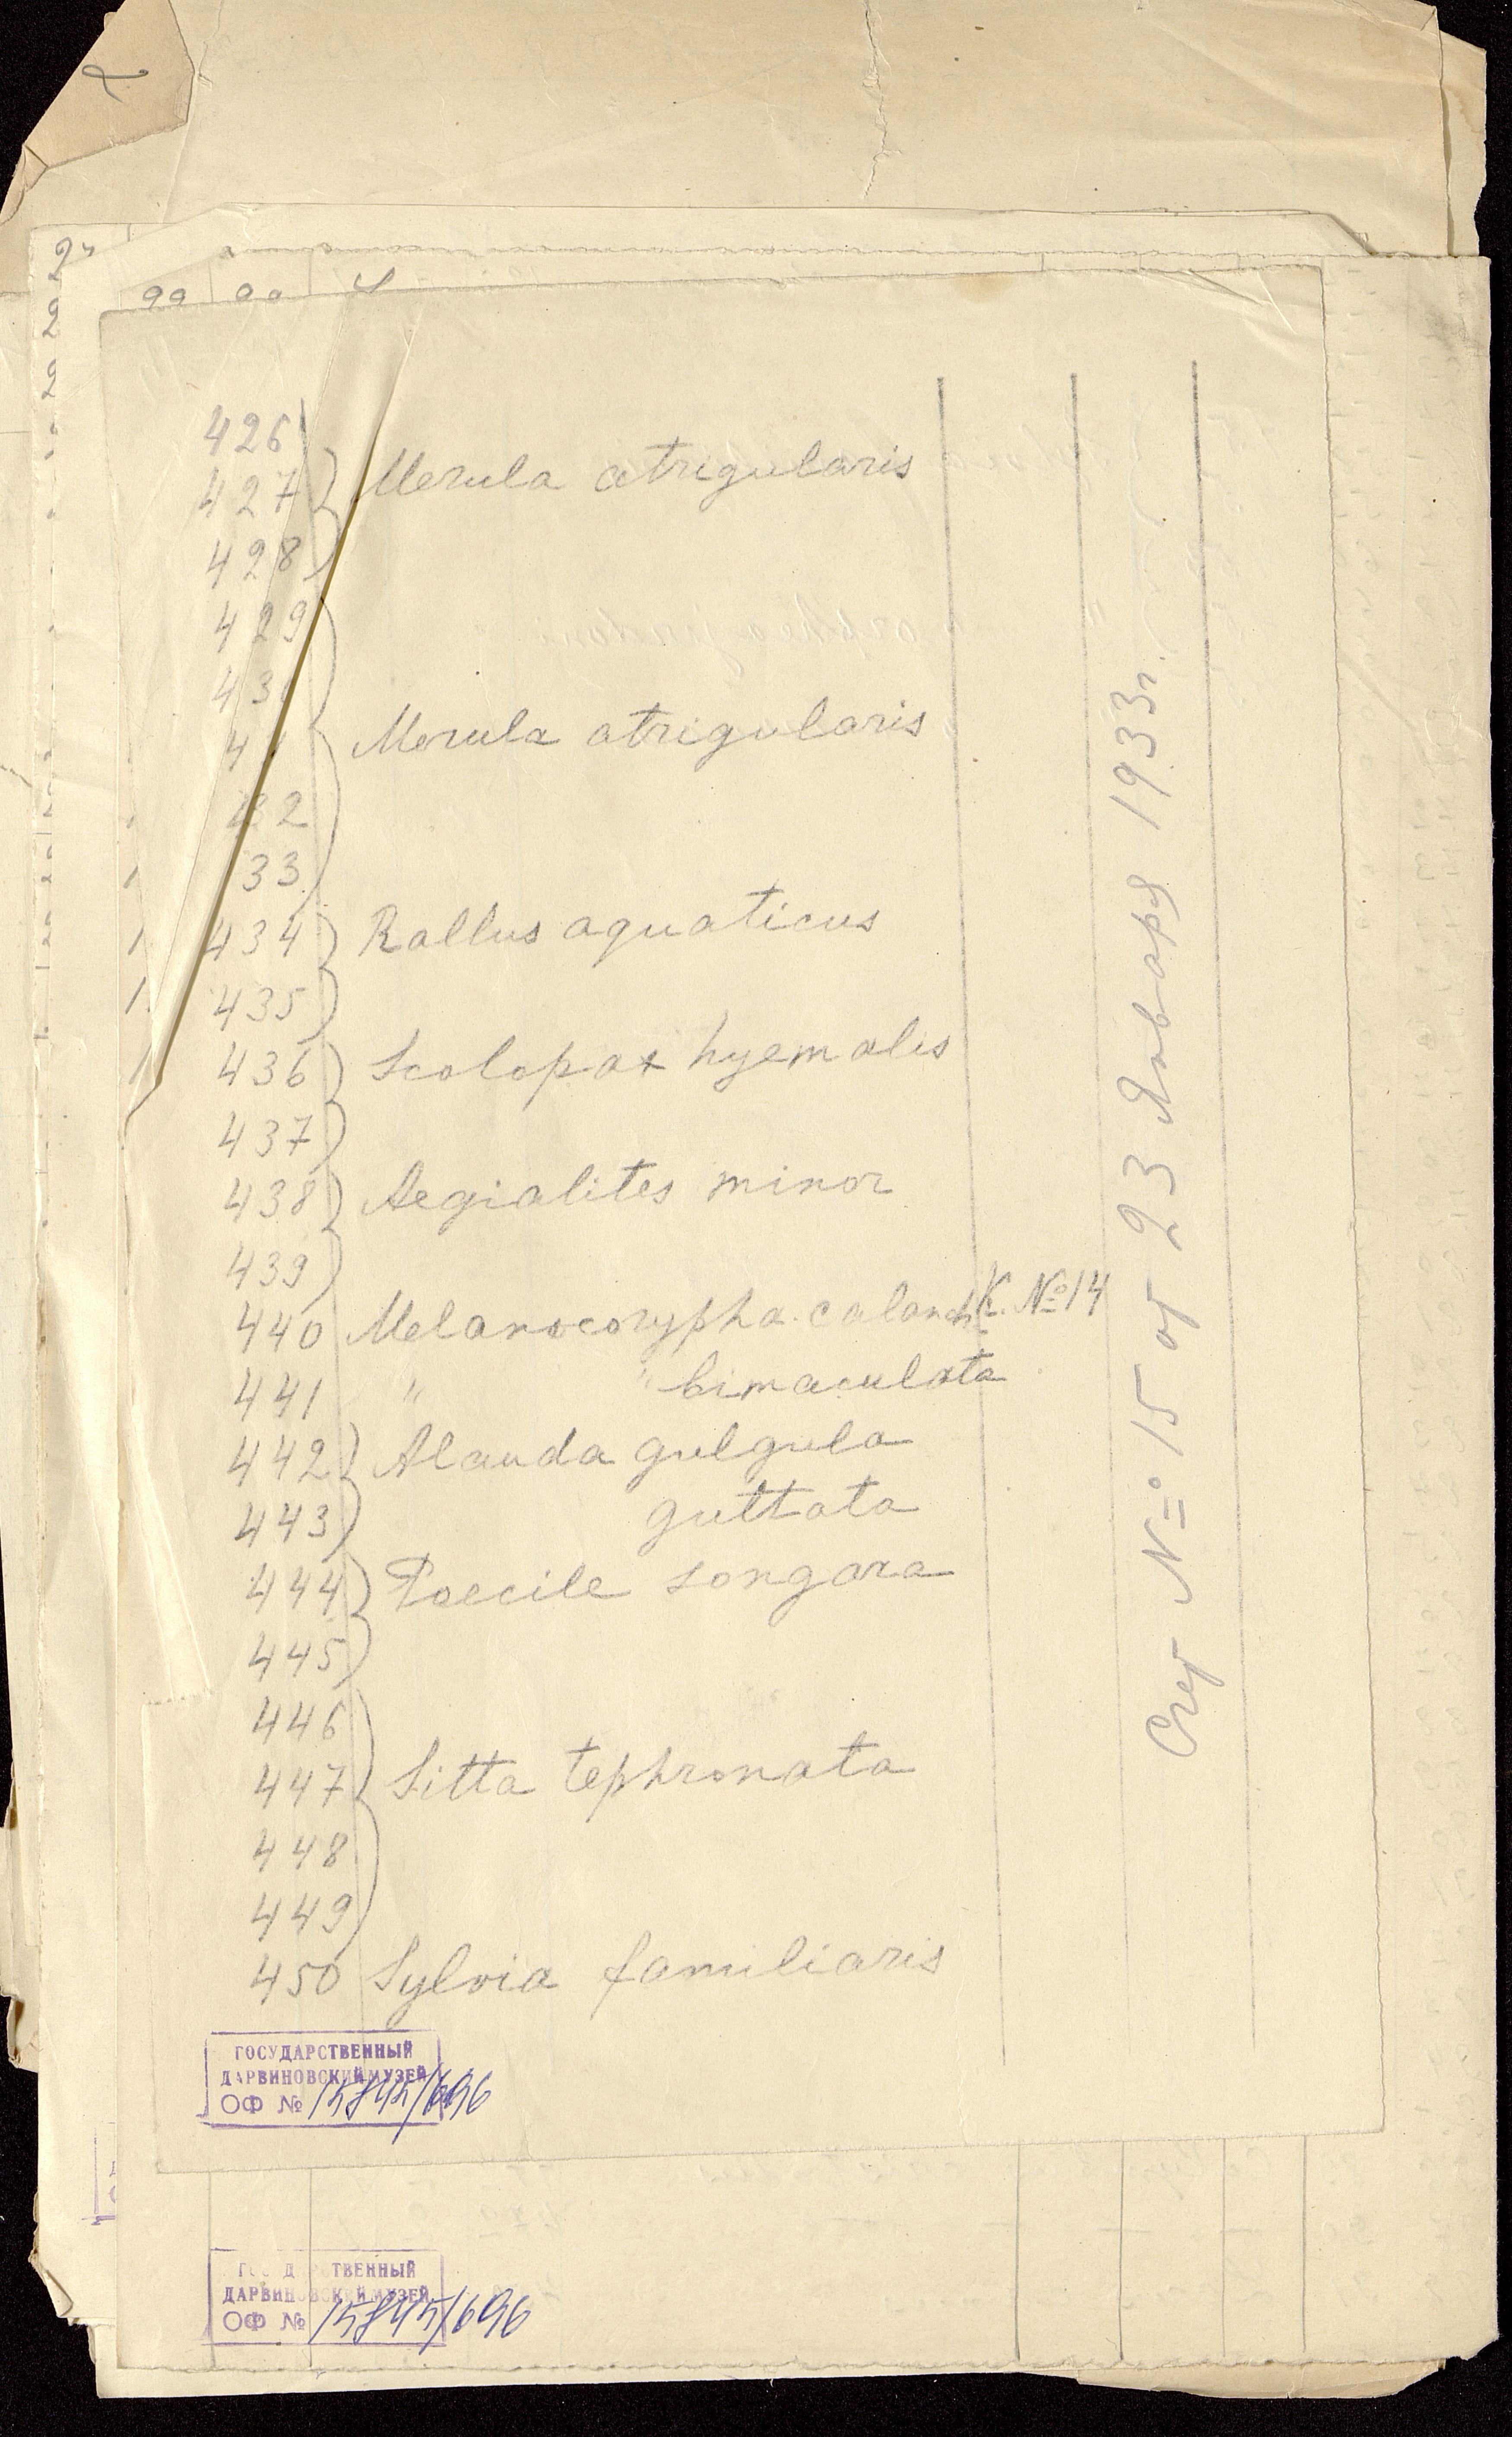 426
427 Merula atrigularis
428
429
43
4 Merula atrigularis
32
33
434 Rallus aquaticus
435
436 Scolopax hyemalis
437
438 Aegialites minor
439
440 Melanocorypha calandr K. № 14
441 " " bimaculata
442 Alauda gulgula
443 guttata
444 Poecile songara
445
446
447 Sitta tephronata
448
449
450 Sylvia familiaris
Счет № 15 от 23 Января 1933г.
ГОСУДАРСТВЕННЫЙ
ДАРВИНОВСКИЙ МУЗЕЙ
ОФ № 15845/696
ГОС Д РСТВЕННЫЙ
ДАРВИНОВСКИЙ МУЗЕЙ
ОФ № 15845/696